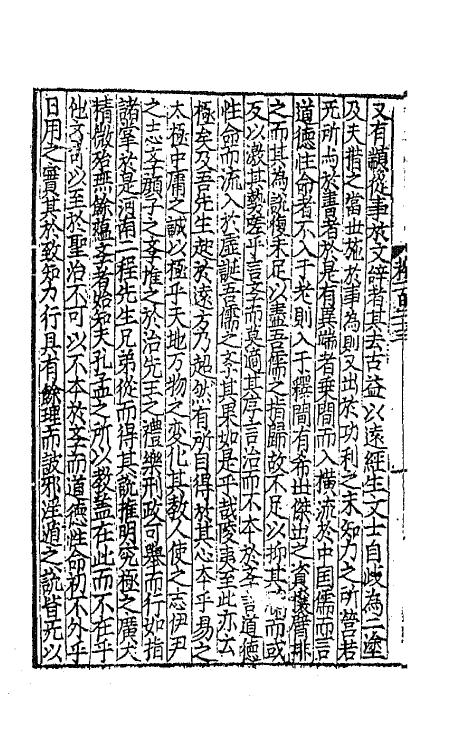 又有顓從事於文辭者其去古益以遠經生文士自歧為二塗
及夫措之當世施於事為則又出於功利之末知力之所營若
无所与於書者於是有異端者乗間而入横流於中国儒而言
道德性命者不入于老則入于釋間有希世傑出之資攘臂排
之而其為說復未足以盡吾儒之指歸故不足以抑其而或
反以激其勢嗟乎言学而莫適其序言治而不本於学言道德
性命而流入於虛誕吾儒之学其果如是乎哉陵夷至此亦云
極矣及吾先生起於遠方乃超然有所自得於其心本乎易之
太極中庸之誠以極乎天地万物之変化其教人使之志伊尹
之志学顔子之学推之於治先王之禮樂刑政可舉而行如指
諸掌於是河南二程先生兄弟從而得其説推明究極之廣大
精微殆無餘蘊学者始知夫孔孟之所以教盖在此而不在乎
他学可以至於聖治不可以不本於学而道德性命初不外乎
日用之實其於致知力行具有餘理而詖邪淫遁之説皆无以